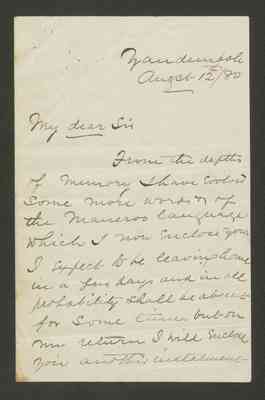 Yandembah
Augst 12th/80
My dear Sir
From the depths
of memory I have evolved
Some more words of
the Maneroo language
which I now Enclose you
I expect to be leaving home
in a few days and in all
probability shall be absent
for Some time but on
my return I will Enclose
you another instalment